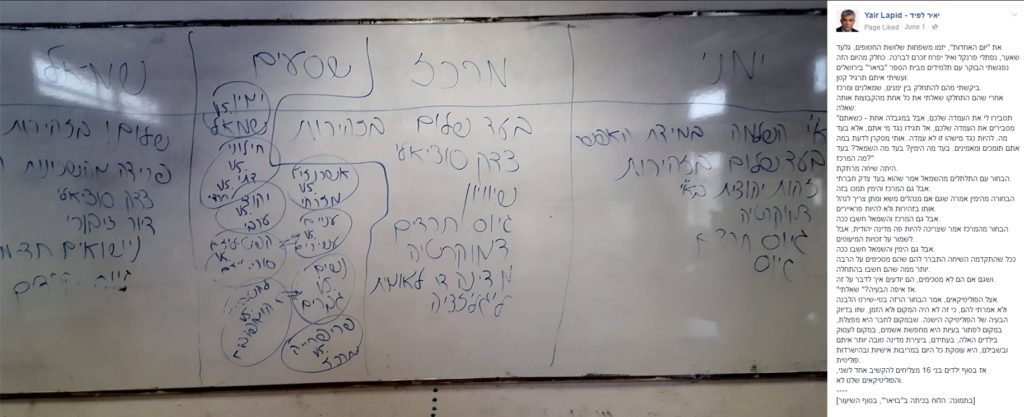 ימני
א"י השלמה במידת האפשר
בעד שלום בזהירות
זהות יהודית בא"י
דמוקרטיה
גיוס
מרכז
בעד שלום בזהירות
צדק סוציאלי
שוויון
גיוס חרדים
דמוקרטיה
מדינה דו לאומית
ליגליזציה
שסעים
ימין vs. שמאל
חילוני vs. דתי vs. חרדי
יהודי vs. ערבי
אשכנזי vs. מזרחי
עניים vs. עשירים
נשים vs. גברים
פריפריה vs. מרכז
שמאל
שלום! בזהירות
פרידה מהשכונות
צדק סוציאלי
דיור ציבורי
נישואים חד-מ
Yair Lapid - יאיר לפיד
Page Liked · June 1 ·
את "יום האחדות", יזמו משפחות שלושת החטופים, גלעד
שאער, נפתלי פרנקל ואיל יפרח זכרם לברכה. כחלק מהיום הזה
נפגשתי הבוקר עם תלמידים מבית הספר "בויאר" בירושלים
ועשיתי איתם תרגיל קטן:
ביקשתי מהם להתחלק בין ימנים, שמאלנים ומרכז.
אחרי שהם התחלקו שאלתי את כל אחת מהקבוצות אותה
שאלה:
"תסבירו לי את העמדה שלכם, אבל במגבלה אחת - כשאתם
מסבירים את העמדה שלכם, אל תגידו נגד מי אתם, אלא בעד
מה. להיות נגד מישהו זו לא עמדה. אותי מסקרן לדעת במה
אתם תומכים ומאמינים. בעד מה הימין? בעד מה השמאל? בעד
מה המרכז?"
היתה שיחה מרתקת.
הבחור עם התלתלים מהשמאל אמר שהוא בעד צדק חברתי.
אבל גם המרכז והימין תמכו בזה.
הבחורה מהימין אמרה שגם אם מנהלים משא ומתן צריך לנהל
אותו בזהירות ולא להיות פראיירים.
אבל גם המרכז והשמאל חשבו ככה.
הבחור מהמרכז אמר שצריכה להיות פה מדינה יהודית, אבל
לשמור על זכויות המיעוטים.
אבל גם הימין והשמאל חשבו ככה.
ככל שהתקדמה השיחה התברר להם שהם מסכימים על הרבה
יותר ממה שהם חשבו בהתחלה.
ושגם אם הם לא מסכימים, הם יודעים איך לדבר על זה.
"אז איפה הבעיה?" שאלתי.
אצל הפוליטיקאים, אמר הבחור הרזה בטי-שירט הלבנה.
ולא אמרתי להם, כי זה לא היה המקום ולא הזמן, שזו בדיוק
הבעיה של הפוליטיקה הישנה. שבמקום לחבר היא מפצלת,
במקום לפתור בעיות היא מחפשת אשמים, במקום לעסוק
בילדים האלה, בעתידם, ביצירת מדינה טובה יותר איתם
ובשבילם, היא עוסקת כל היום במריבות אישיות ובהישרדות
פוליטית.
אז בסוף ילדים בני 16 מצליחים להקשיב אחד לשני,
והפוליטיקאים שלנו לא.
----
[בתמונה: הלוח בכיתה ב"בויאר", בסוף השיעור]